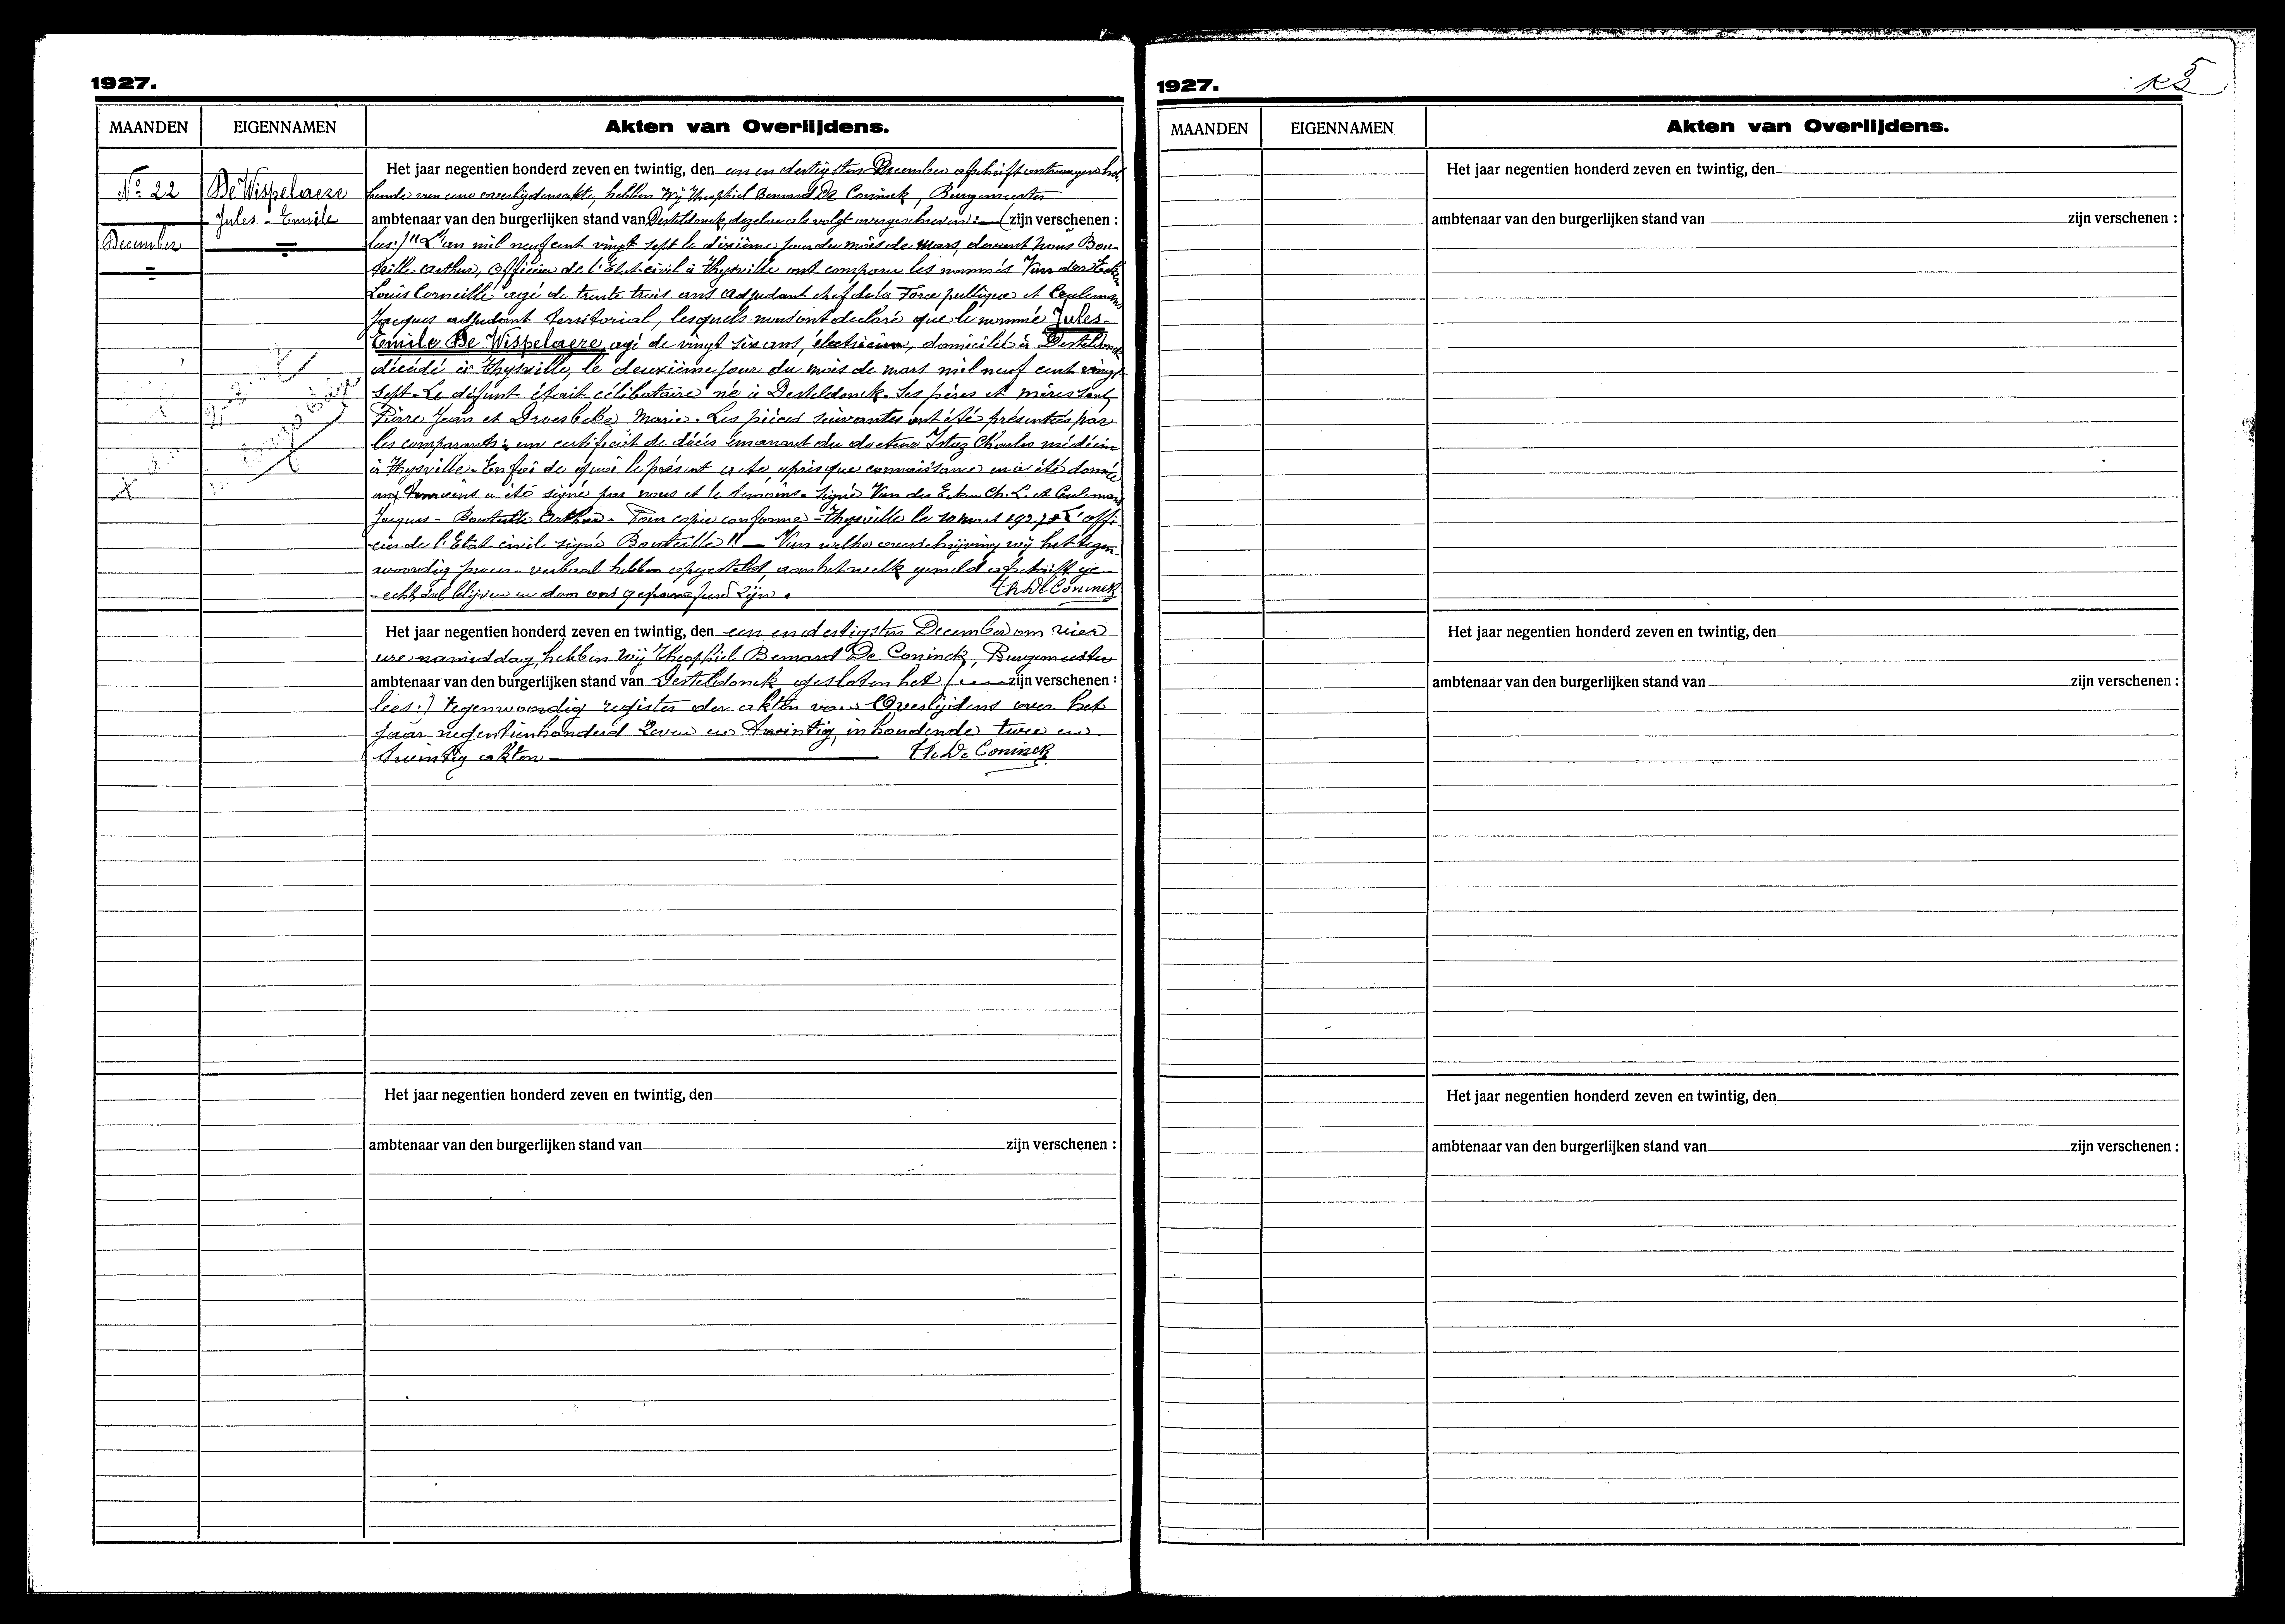 1927.
MAANDEN
EIGENNAMEN
Akten van Overlijdens.
No 22
December
De Wispelaere
Jules - Emile
Het jaar negentien honderd zeven en twintig, den een en dertigsten December afschrift ontvangen heb-
bende van eene overlijdensakte, hebben Wij Theophiel Bernard De Coninck, Burgemeester
ambtenaar van den burgerlijken stand van Desteldonck, dezelve als volgt overgeschreven: (zijn verschenen :
lees:) "L'an mil neuf cent vingt sept le dixième jour du mois de Mars, devant nous Bou-
teille Arthur, Officier de l'Etat-civil à Thysville ont comparu les nommés Van der Ecken
Louis Corneille âgé de trente trois ans Adjudant chef de la Force publique et Ceulemans
Jacques adjudant Territorial, lesquels nous ont declaré que le nommé Jules-
Emile De Wispelaere, agé de vingt six ans, électricien, domicilié à Desteldonck
décédé à Thysville, le deuxième jour du mois de mars mil neuf cent vingt
sept. Le défunt était célibataire né à Desteldonck. Ses pères et mères sont
Pierre Jean et Droesbeke Marie. Les pièces suivantes ont été présentées par
les comparants: un certificat de décès émanant du docteur Istaz Charles médecin
à Thysville. En foi de quoi le présent acte après que connaissance en a été donnée
aux témoins a été signé par nous et le témoins. Signé Van der Ecken Ch. L. et Ceulemans
Jacques - Bouteille Arthur. Pour copie conforme - Thysville le 10 mars 1927. L'offi-
cier de l'Etat-civil signé Bouteille" Van welke overschrijving wij het tegen-
woordig proces-verbaal hebben opgesteld, aan het welk gemeld afschrift ge-
echt zal blijven en door ons geparafeerd zijn.
Th. De Coninck
Het jaar negentien honderd zeven en twintig, den een en dertigsten December om vier
ure namiddag, hebben Wij Theophiel Bernard De Coninck, Burgemeester
ambtenaar van den burgerlijken stand van Desteldonck gesloten het (zijn verschenen :
lees:) tegenwoordig register der akten van Overlijdens over het
jaar negentienhonderd Zeven en Twintig, inhoudende twee en
twintig akten
Th. De Coninck
Het jaar negentien honderd zeven en twintig, den
ambtenaar van den burgerlijken stand van zijn verschenen :
1927.
5
MAANDEN
EIGENNAMEN
Akten van Overlijdens.
Het jaar negentien honderd zeven en twintig, den
ambtenaar van den burgerlijken stand van zijn verschenen :
Het jaar negentien honderd zeven en twintig, den
ambtenaar van den burgerlijken stand van zijn verschenen :
Het jaar negentien honderd zeven en twintig, den
ambtenaar van den burgerlijken stand van zijn verschenen :